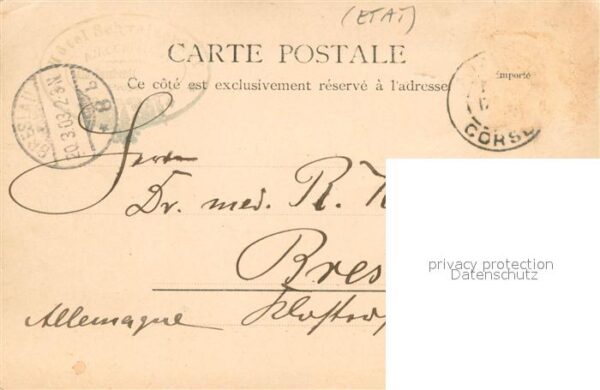 (ETAT)
CARTE POSTALE
Ce côté est exclusivement réservé à l'adresse
importé
Hotel
BRESLAU
20.3.03.2-3N
CORSE
Herrn
Dr. med. R. K
Bres
Allemagne Kloster
privacy protection
Datenschutz